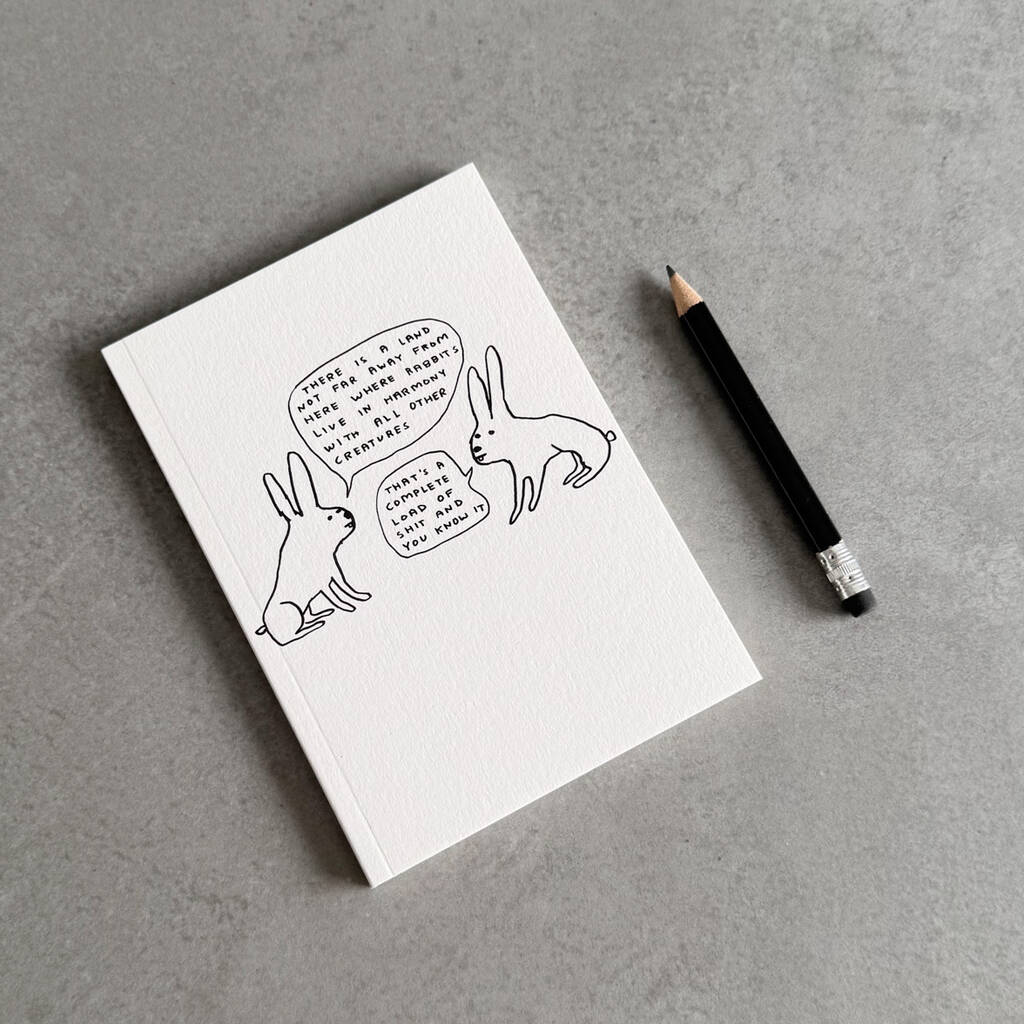 THERE IS A LAND
NOT FAR AWAY FROM
HERE WHERE RABBITS
LIVE IN HARMONY
WITH ALL OTHER
CREATURES
THAT'S A
COMPLETE
LOAD OF
SHIT AND
YOU KNOW IT